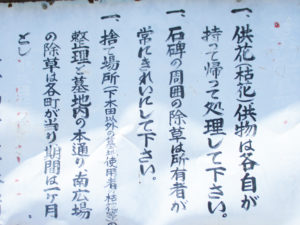 一、供花(枯花)供物は各自が
持って帰って処理して下さい。
一、石碑の周囲の除草は所有者が
常にきれいにして下さい。
一、捨て場所(下木田以外の墓地使用者、枯花等)の
整理と墓地内の本通り、南広場
の除草は各町が当り期間は一ヶ月
とし